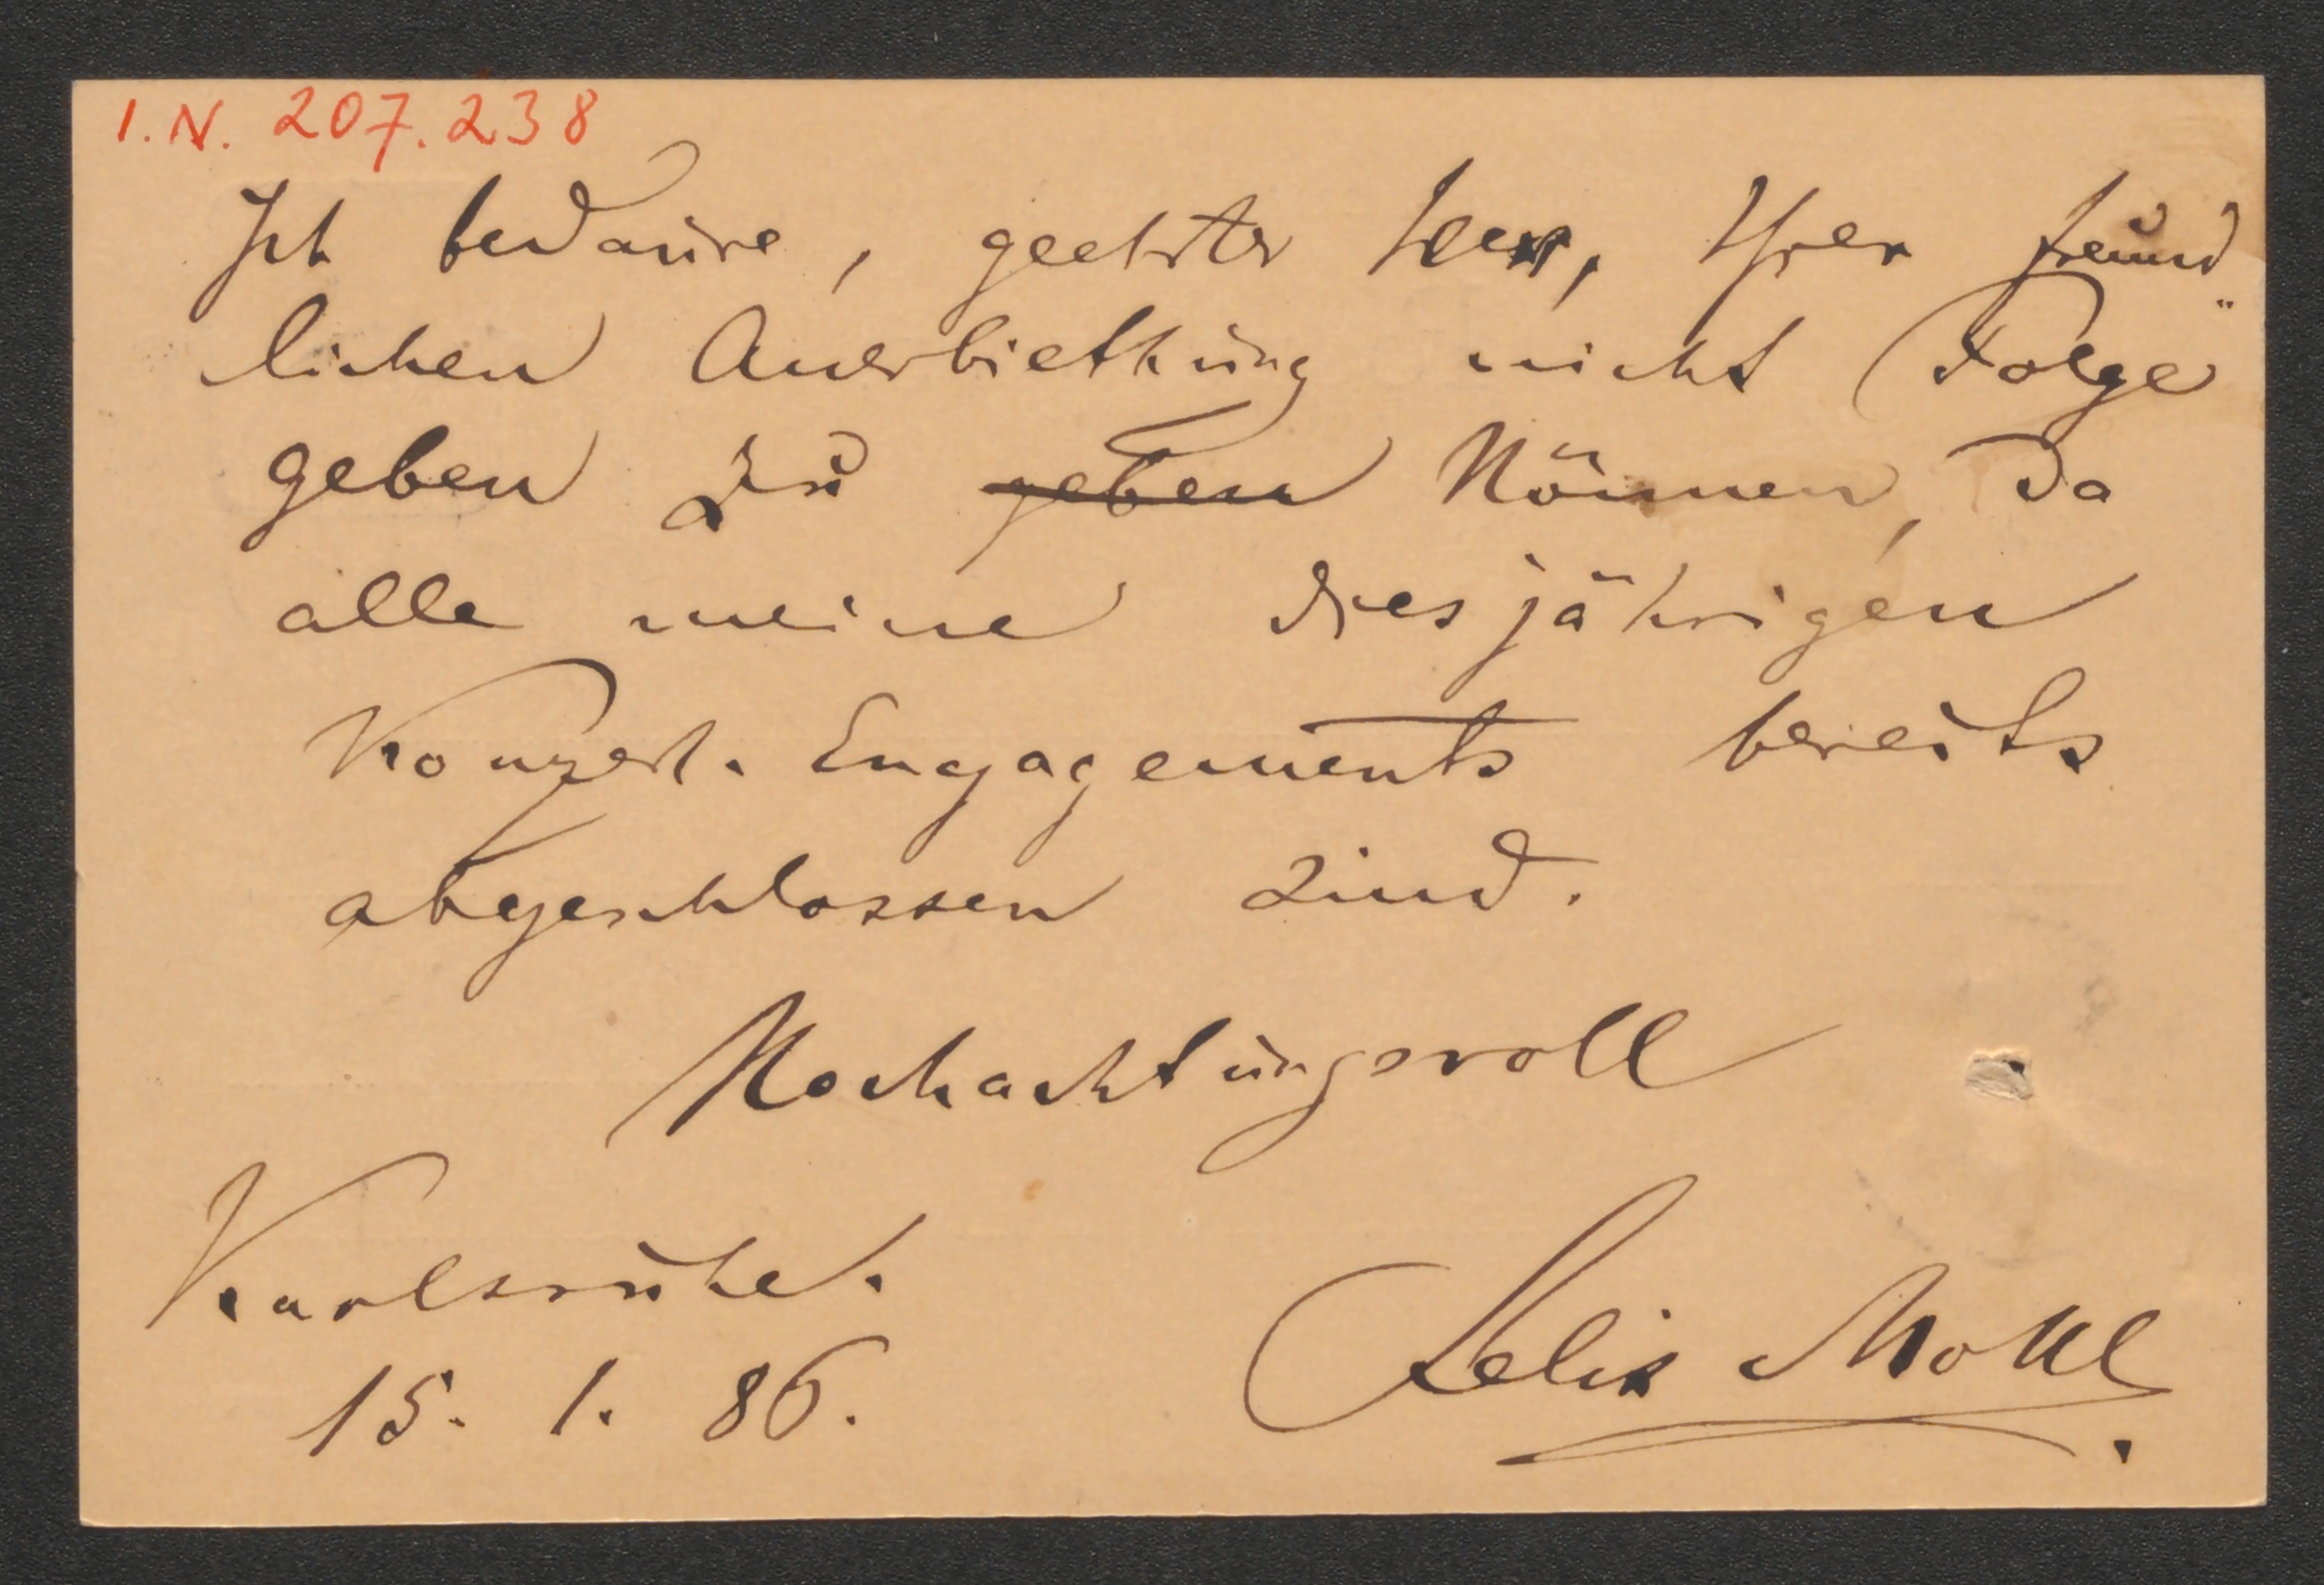 I.N. 207.238
Ich bedaure, geehrter Herr, Ihrer freund„
lichen Anerbiethung nicht Folge
geben zu geben können, da
alle meine diesjährigen
Konzert-Engagements bereits
abgeschlossen sind.
Hochachtungsvoll
Karlsruhe.
15. 1. 86.
Felix Mottl.